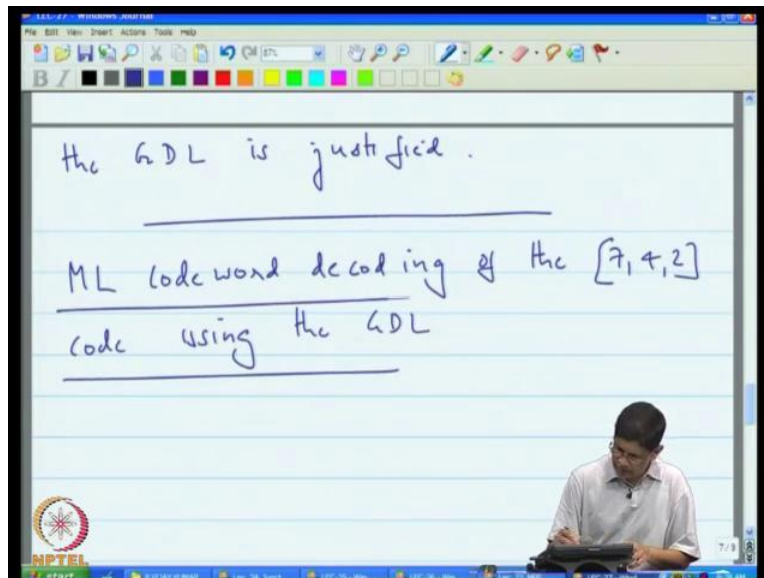 LEC-27 - Windows Journal
File Edit View Insert Actions Tools Help
87%
B I
the GDL is justified.
ML codeword decoding of the [7, 4, 2]
code using the GDL
7/9
NPTEL
start